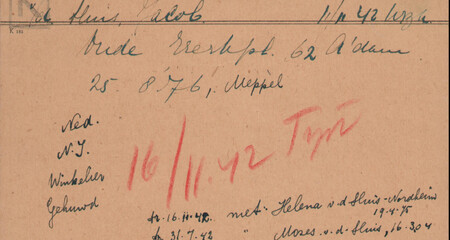 v.d. Sluis, Jacob 11/11 42 Wrzk
Oude Yserkpl. 62 A'dam
25. 8 '76, Meppel
Ned.
N.I.
Winkelier
16/11.42 Typ
Gehuwd
tr. 16.11.42. met Helena v.d. Sluis-Nordheim
19-4-75
tr. 31.7.42 " Moses v.d. Sluis, 16-3 04